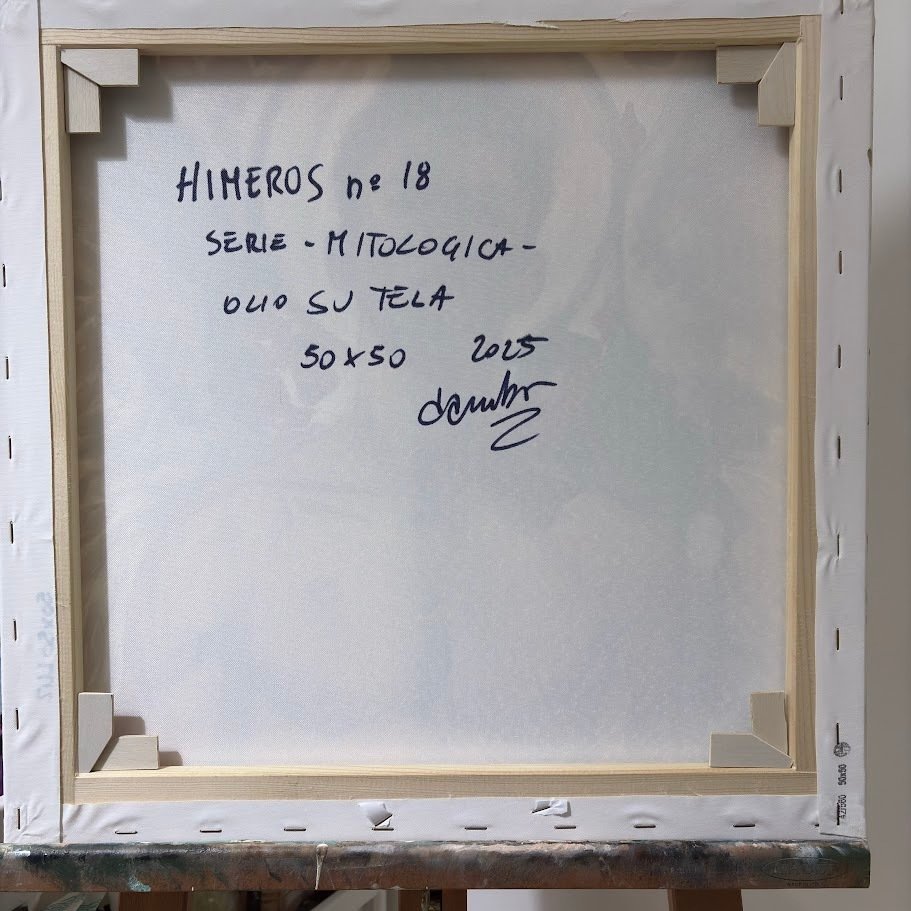 HIMEROS nº 18
SERIE - MITOLOGICA -
OLIO SU TELA
50x50 2025
50x50